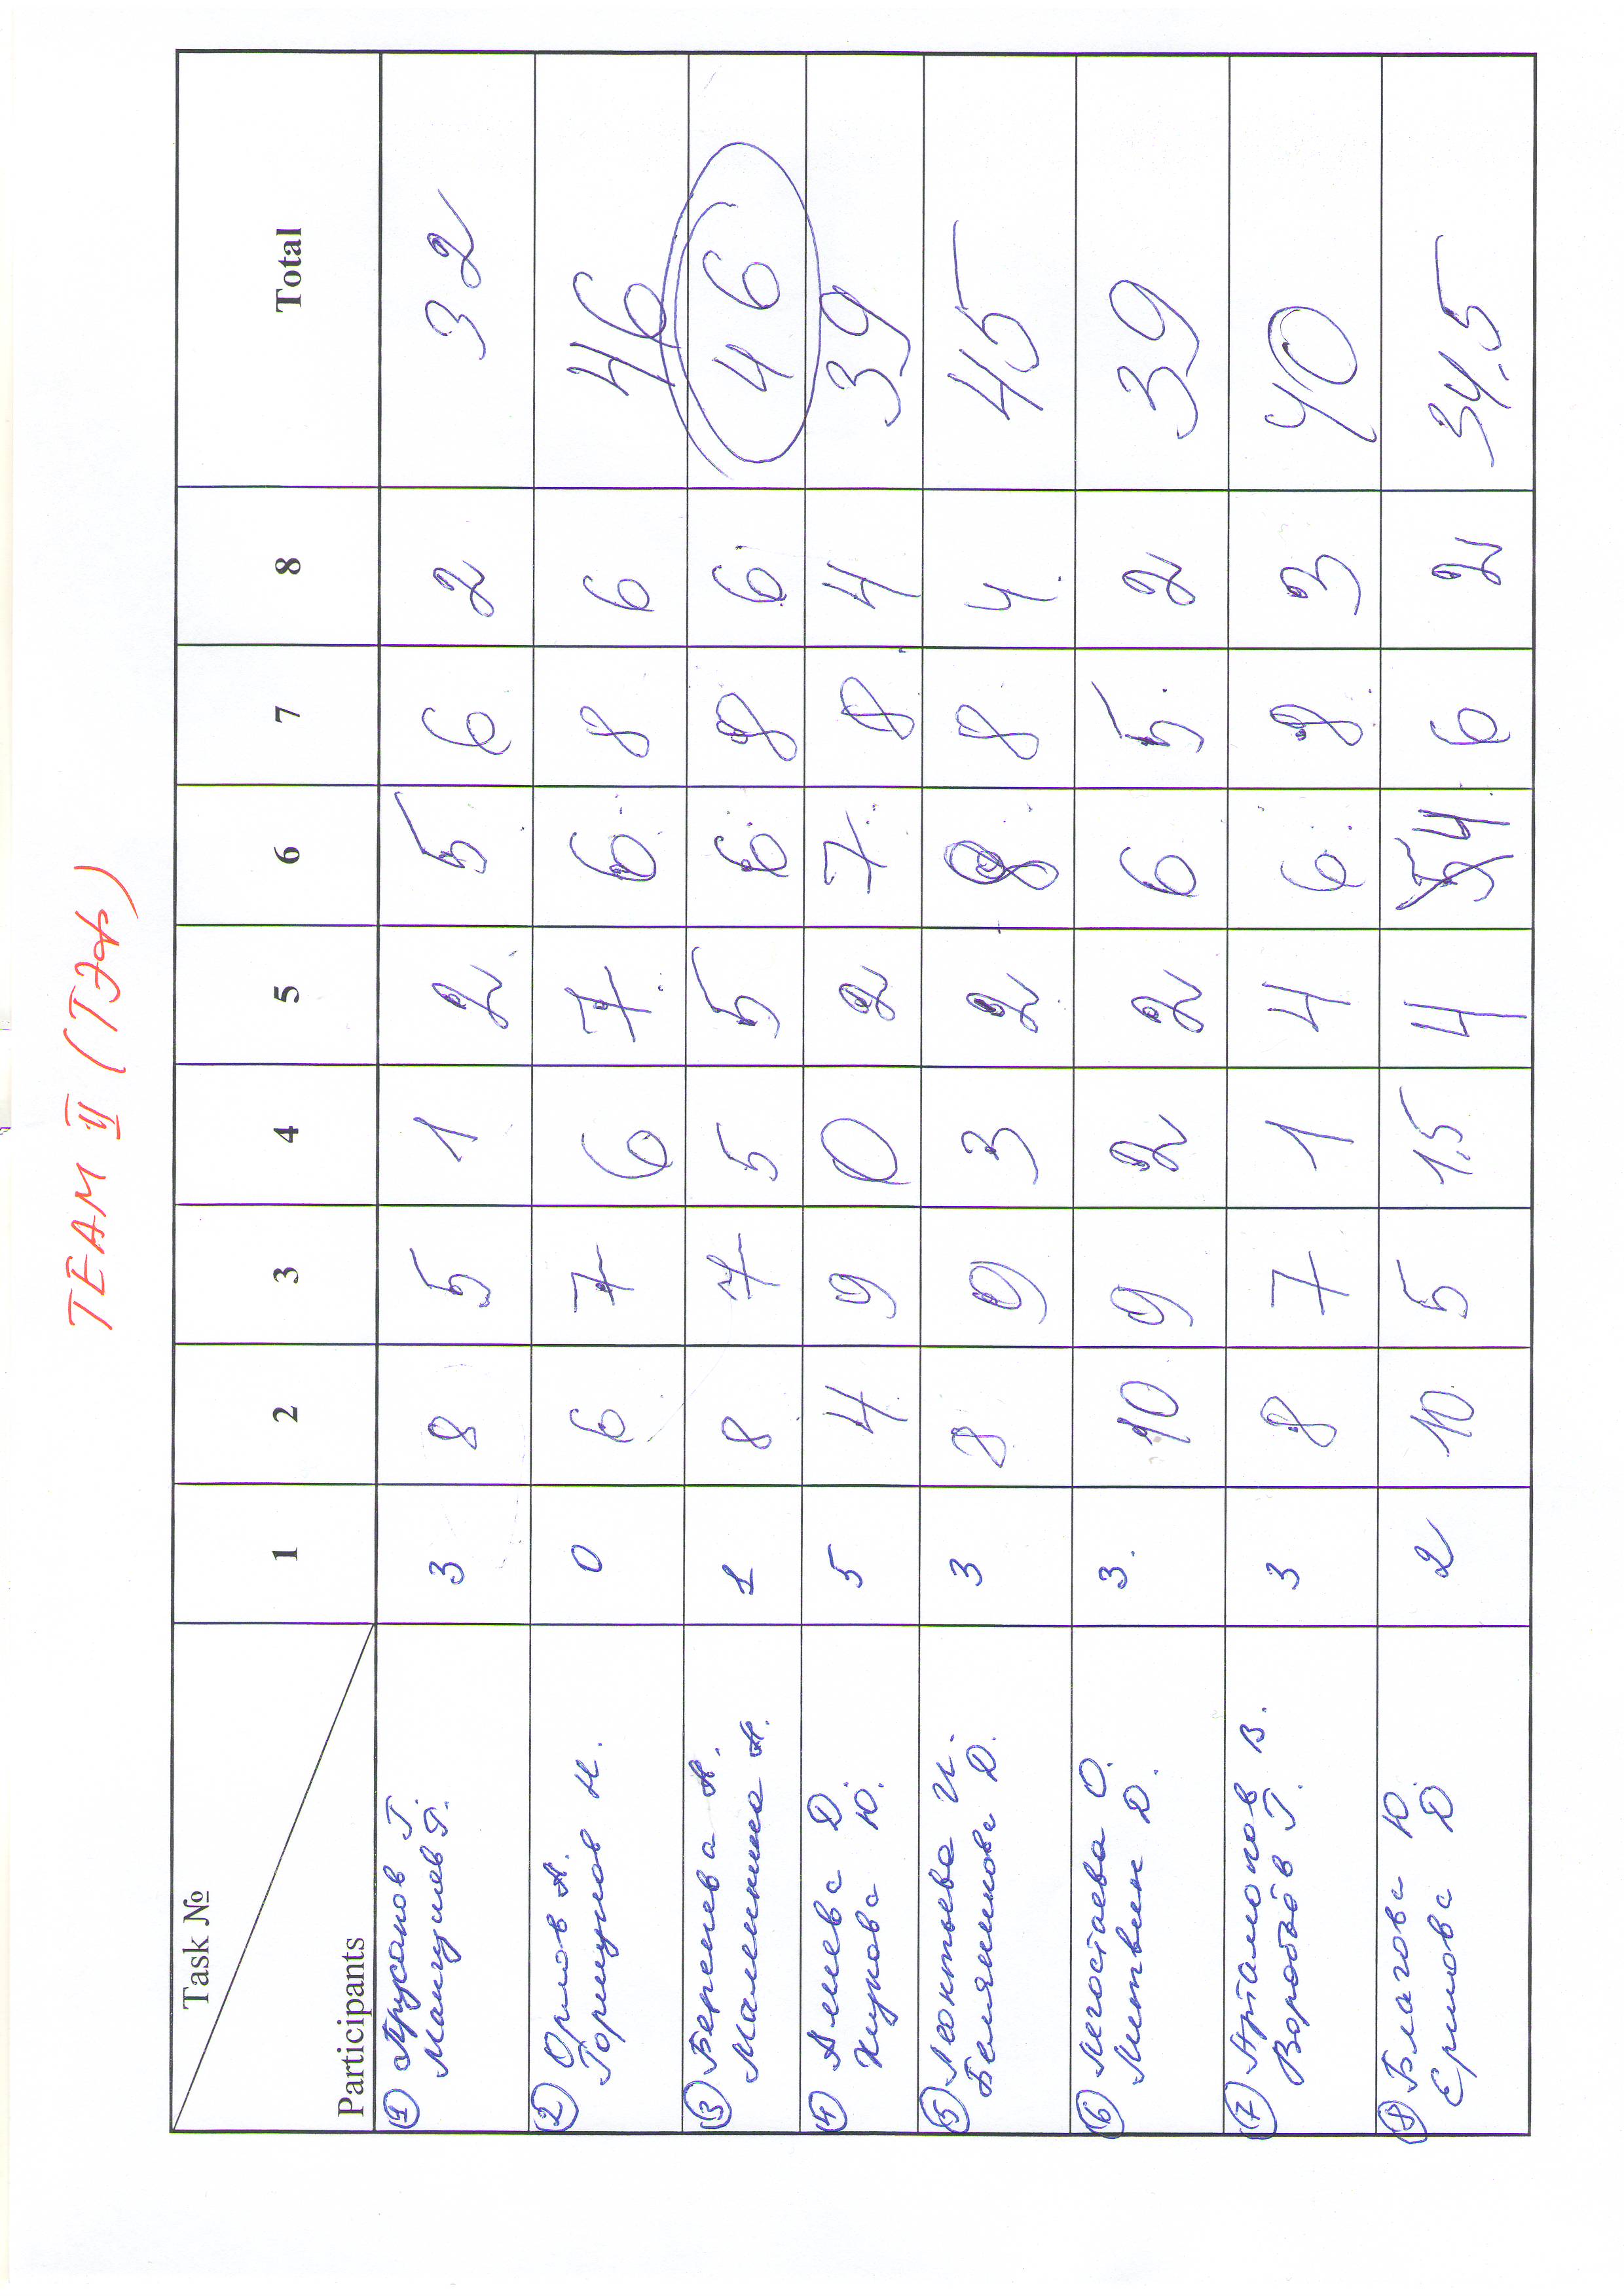 TEAM II (ТЭФ)
Task № 1 2 3 4 5 6 7 8 Total
Participants
1 Г. 3 8 5 1 2 5 6 2 32
Манцулев Я.
2 Орлов А. 0 6 7 6 7 6 8 6 46
Горшунов Н.
3 Бернева А. 1 8 7 5 5 6 8 6 46
Маленкина А.
4 Алиева Д. 5 4 9 0 2 7 8 4 39
Жукова Ю.
5 Леонтьева И. 3 8 9 3 2 8 8 4 45
Белянинова Д.
6 Легостаева О. 3 10 9 2 2 6 5 2 39
Литвин Д.
7 Артамонов В. 3 8 7 1 4 6 8 3 40
Воробьёв Г.
8 Благова Ю. 2 10 5 1,5 4 4 6 2 34,5
Ершова Д